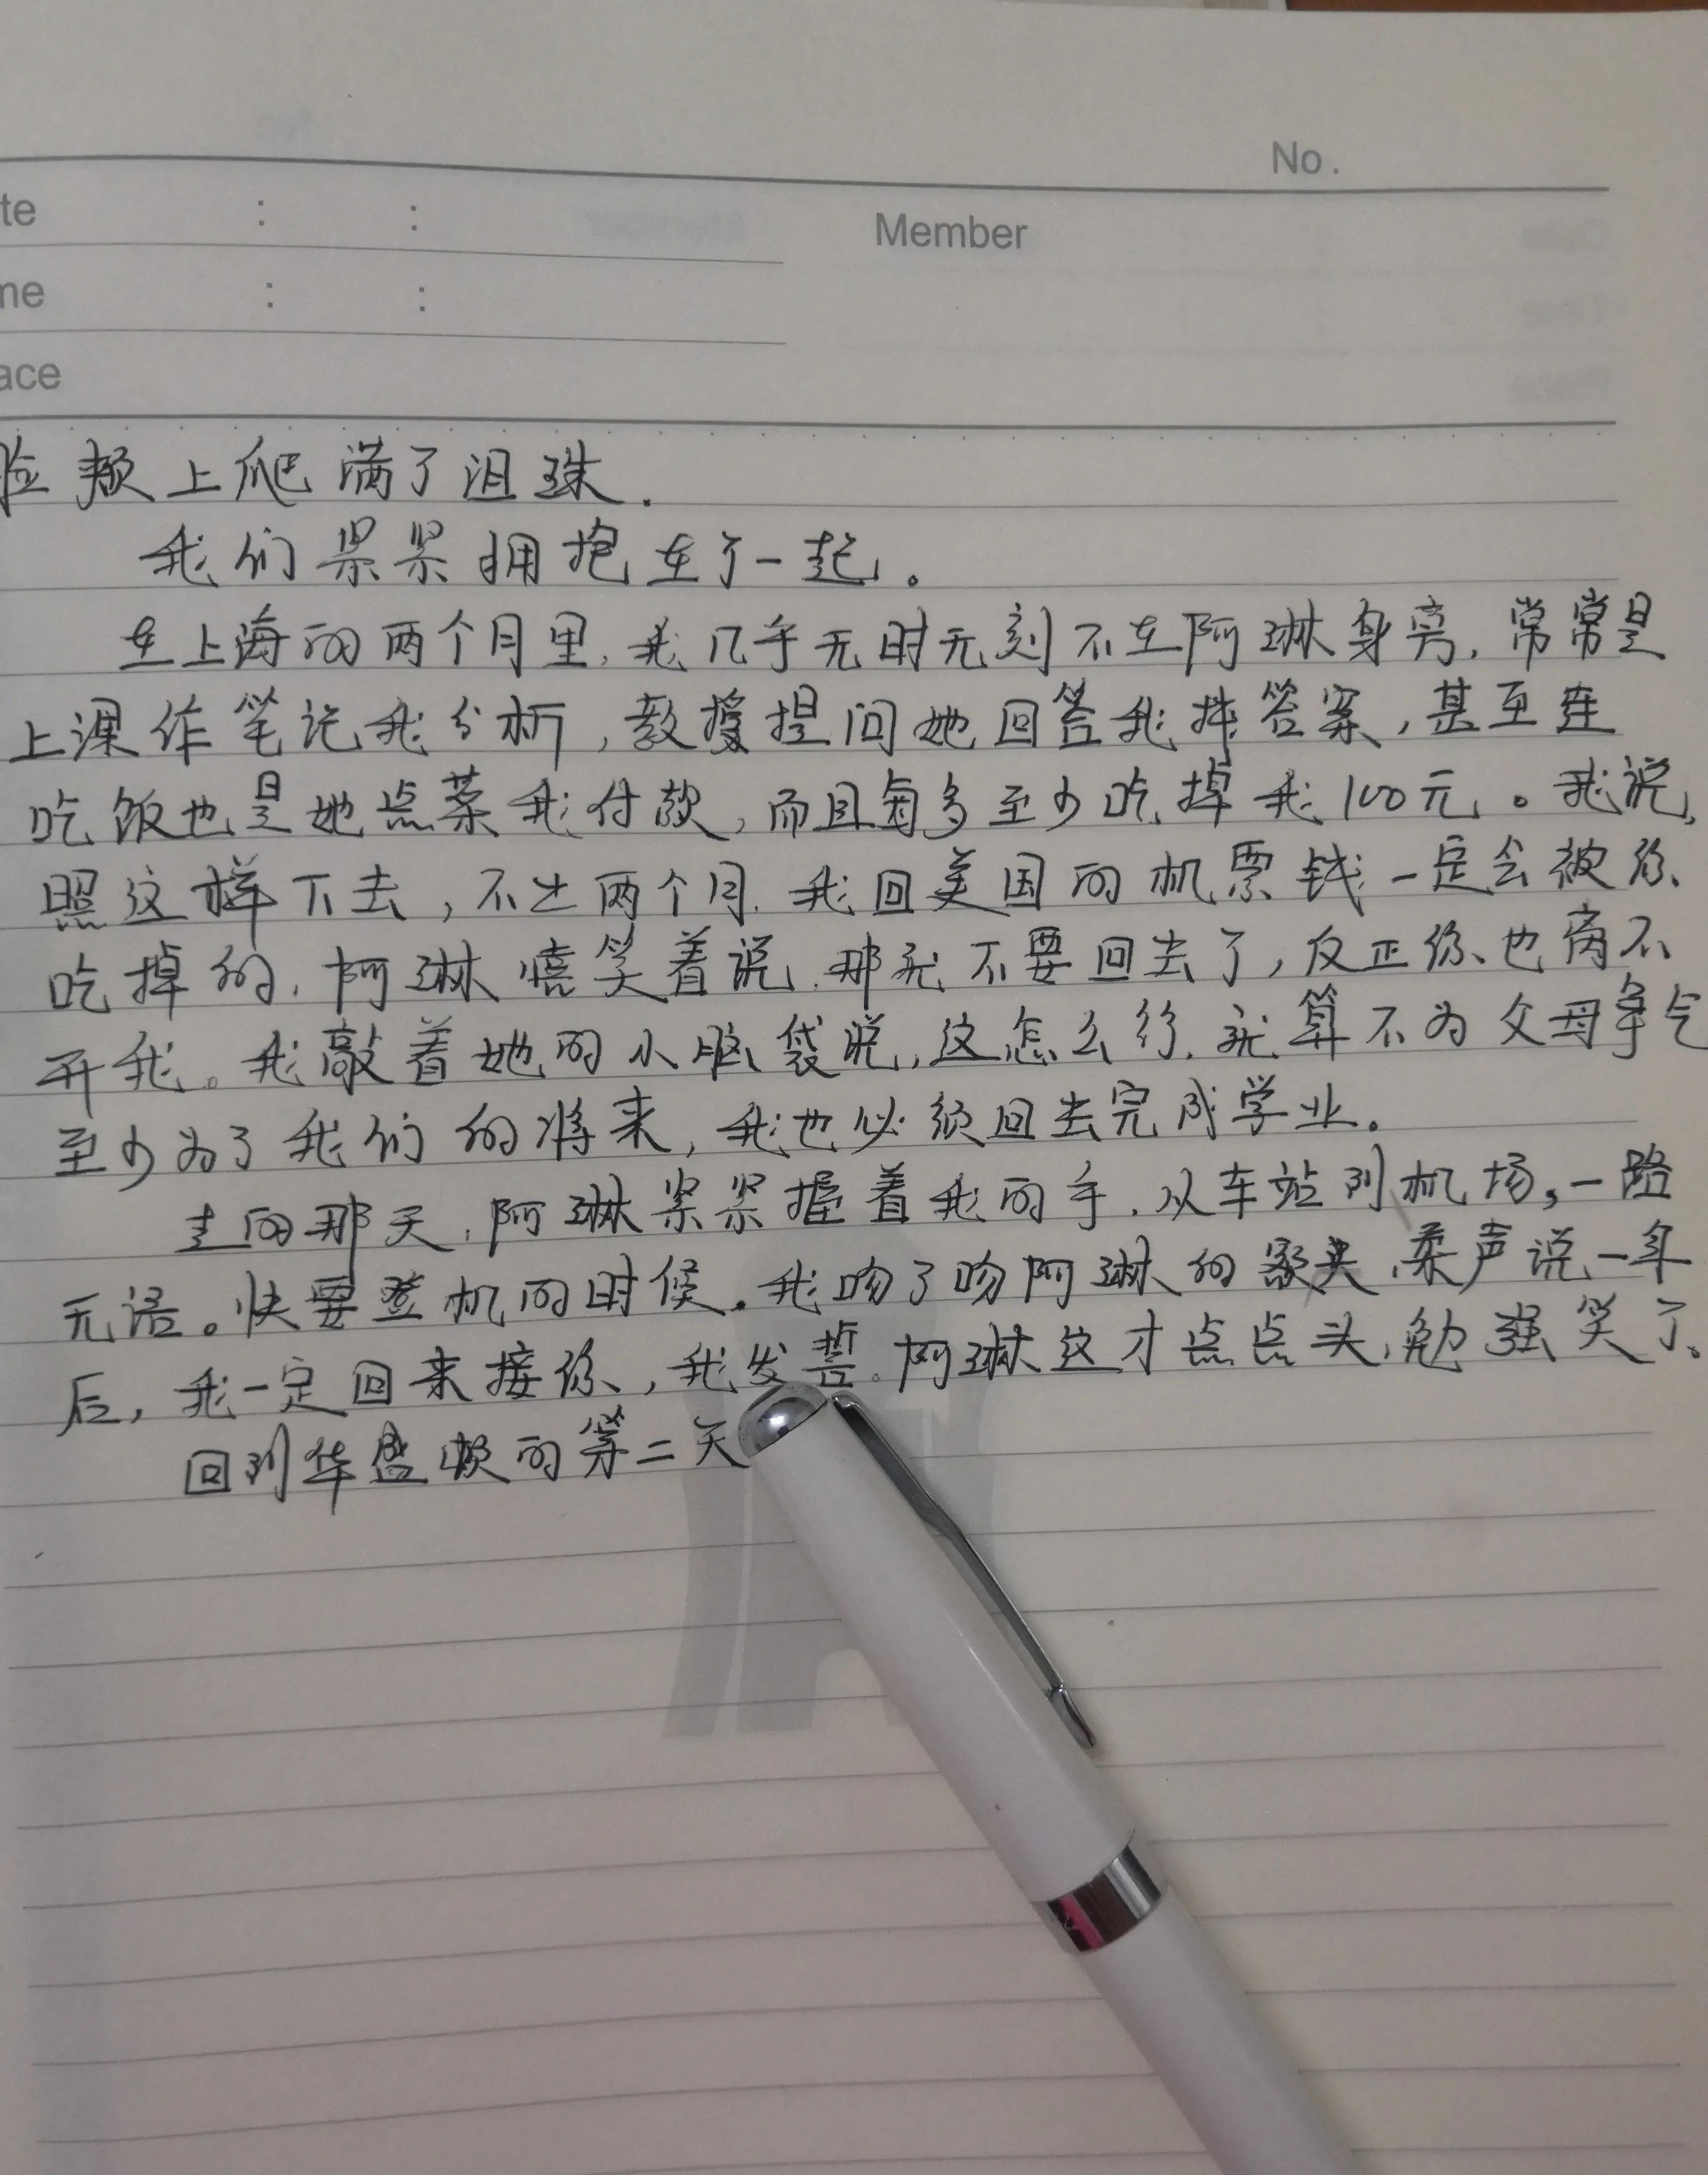 No.
te : :
Member
me : :
ace
脸颊上爬满了泪珠.
我们紧紧拥抱在了一起。
在上海的两个月里,我几乎无时无刻不在阿琳身旁,常常是
上课作笔记我分析,教授提问她回答我择答案,甚至连
吃饭也是她点菜我付款,而且每多至少吃掉我100元。我说,
照这样下去,不出两个月,我回美国的机票钱一定会被你
吃掉的,阿琳嘻笑着说,那就不要回去了,反正你也离不
开我。我敲着她的小脑袋说,这怎么行,就算不为父母争气
至少为了我们的将来,我也必须回去完成学业。
走的那天,阿琳紧紧握着我的手,从车站到机场,一路
无语。快要登机的时候。我吻了吻阿琳的额头,柔声说一年
后,我一定回来接你,我发誓。阿琳这才点点头,勉强笑了。
回到华盛顿的第二天